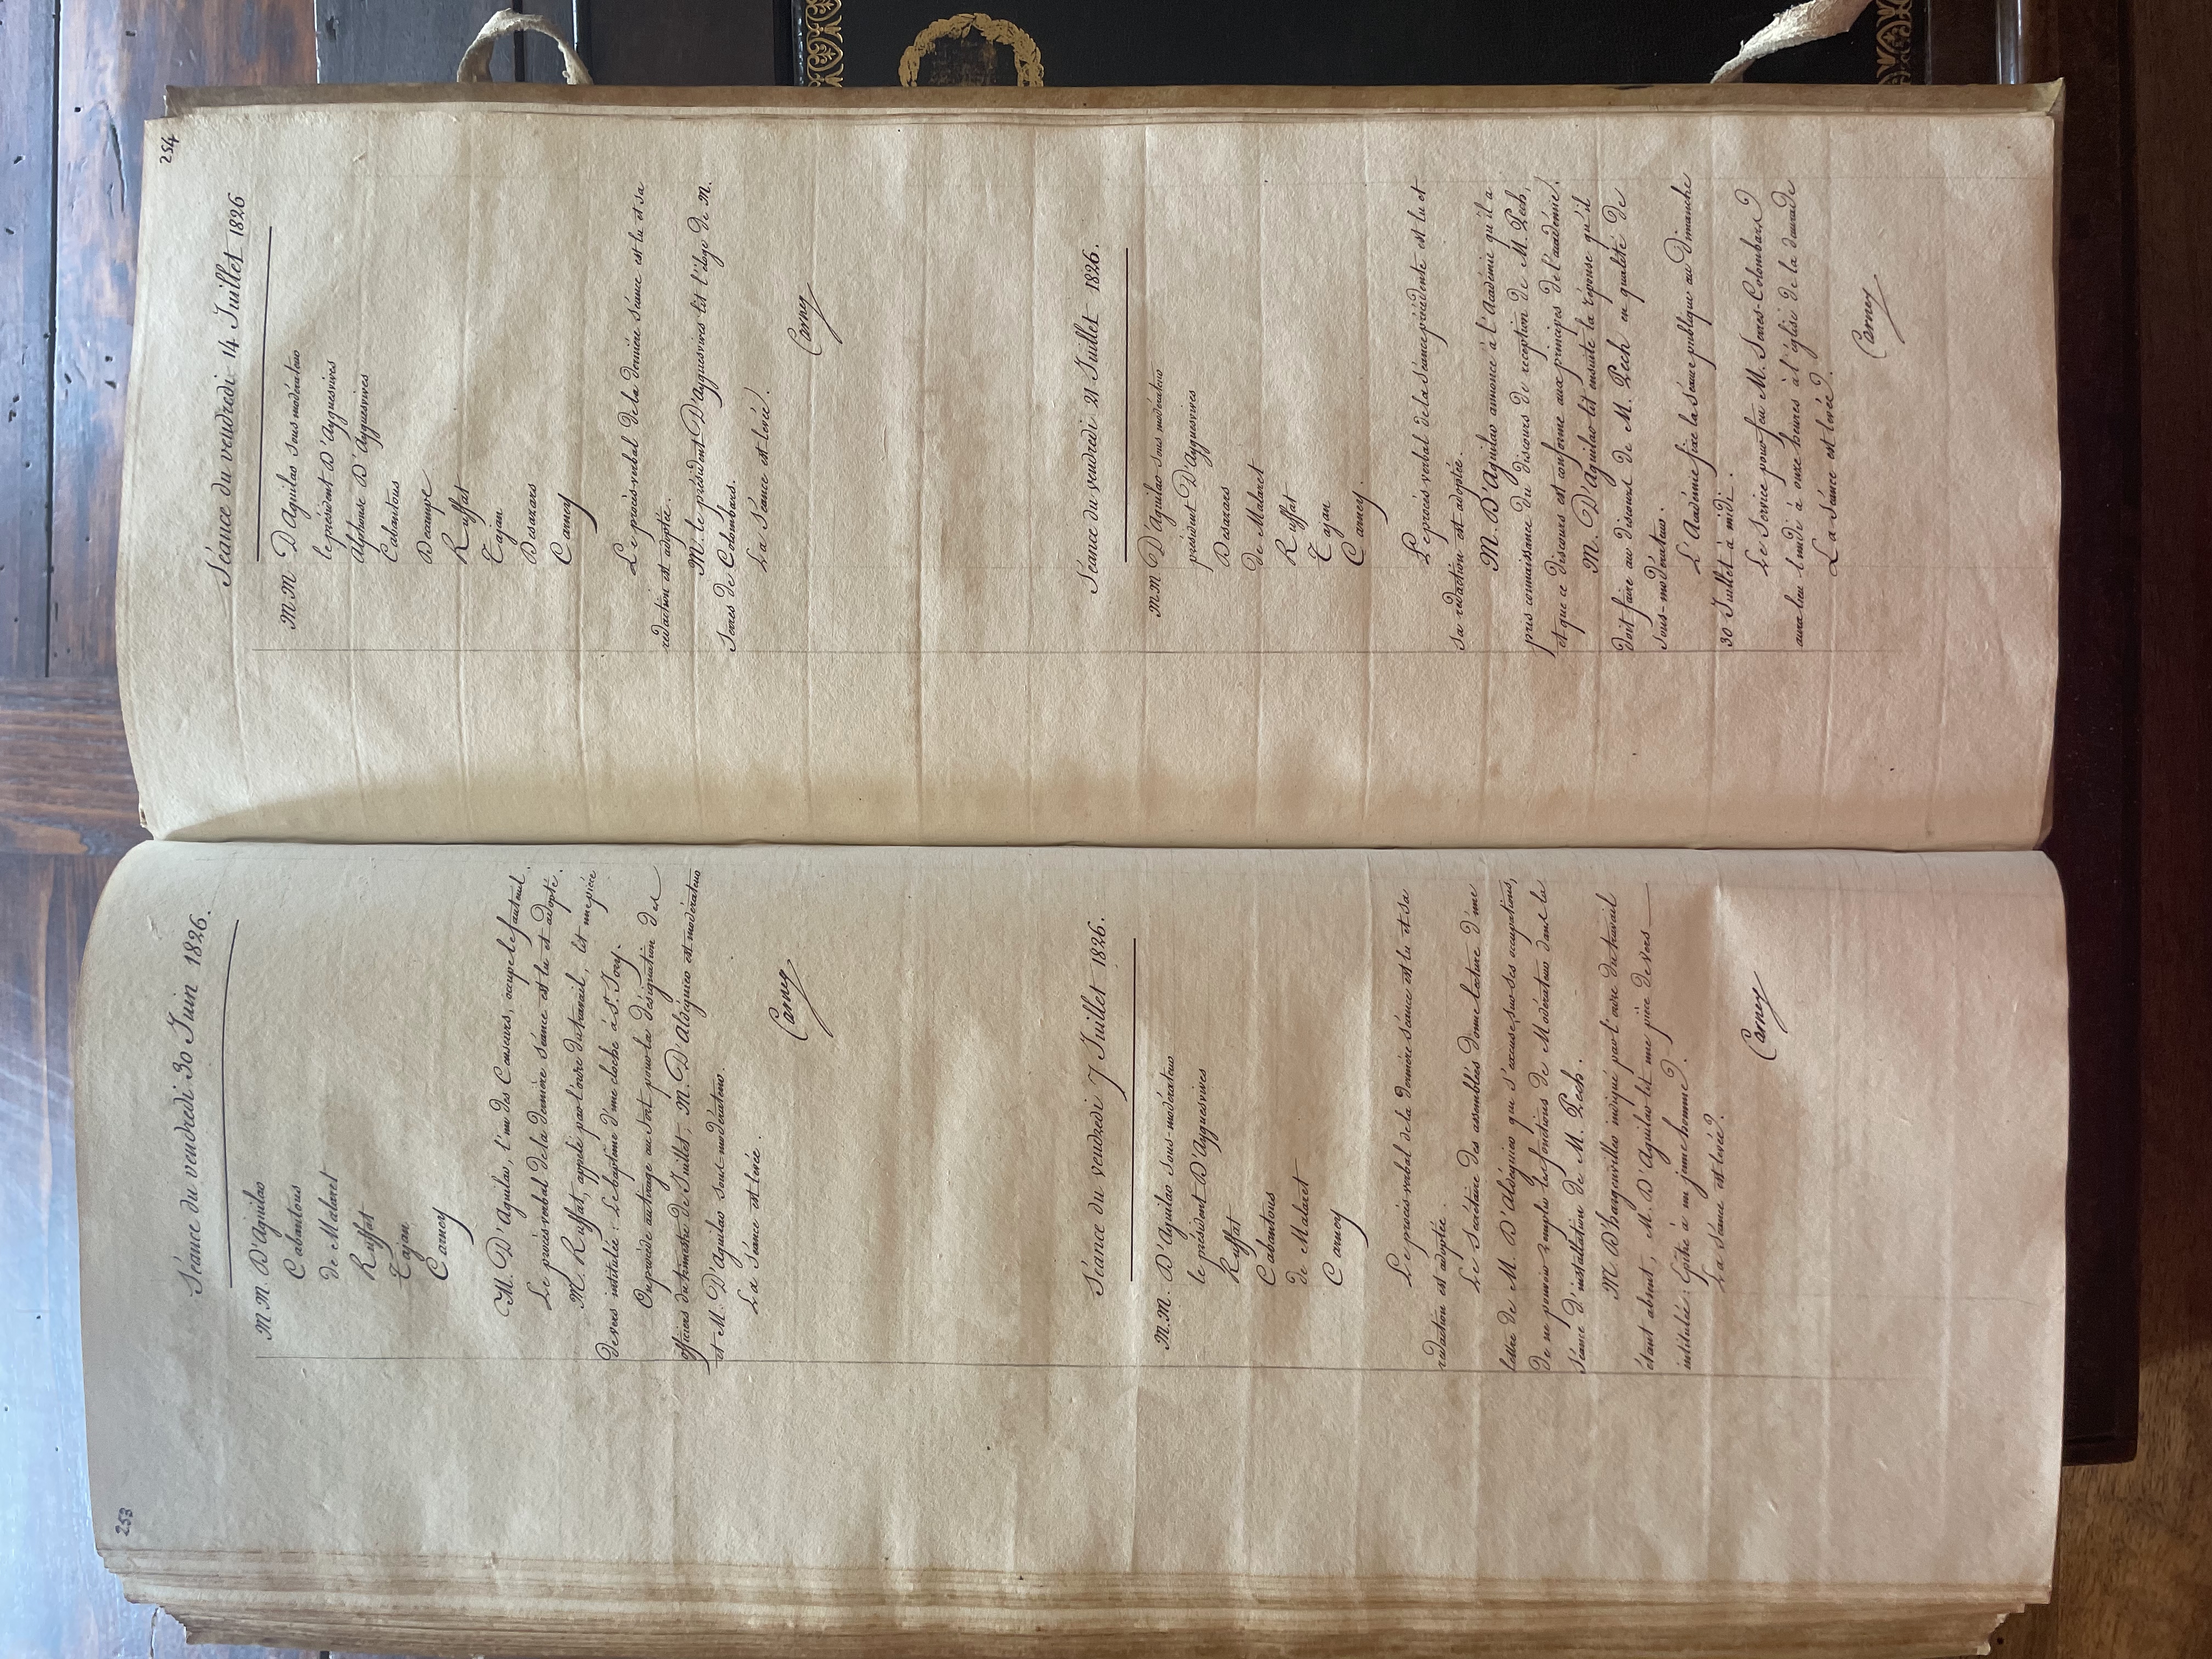 253
Séance du vendredi 30 Juin 1826.
M.M. D'Aguilar
Cabantous
de Malaret
Ruffat
Tajan
Carney
M. D'Aguilar, l'un des Censeurs, occupe le fauteuil.
Le procès-verbal de la dernière séance est lu et adopté.
M. Ruffat, appelé par l'ordre du travail, lit une pièce
de vers intitulée: Le baptême d'une cloche à St. Jory.
On procède au tirage au sort pour la désignation des
officiers du trimestre de Juillet, M. D'Aldéguier est modérateur
et M. D'Aguilar sous-modérateur.
La Séance est levée.
Carney
Séance du vendredi 7 Juillet 1826.
M.M. D'Aguilar sous-modérateur
le président D'Ayguesvives
Ruffat
Cabantous
de Malaret
Carney
Le procès-verbal de la dernière séance est lu et sa
redaction est adoptée.
Le Secrétaire des assemblées donne lecture d'une
lettre de M. D'Aldéguier qui s'excuse, sur ses occupations,
de ne pouvoir remplir les fonctions de Modérateur dans la
séance d'installation de M. Pech.
M. D'hargenvillier indiqué par l'ordre du travail
étant absent, M. D'Aguilar lit une pièce de vers
intitulée: Epitre à un jeune homme.
La séance est levée.
Carney
254
Séance du vendredi 14 Juillet 1826
M.M. D'Aguilar sous modérateur
le président D'Ayguesvives
Alphonse D'Ayguesvives
Cabantous
Decampe
Ruffat
Tajan
Desazars
Carney
Le procès-verbal de la dernière séance est lu et sa
redaction est adoptée.
M. le président D'Ayguesvives lit l'éloge de M.
Serres de Colombars.
La Séance est levée.
Carney
Séance du vendredi 21 Juillet 1826.
M.M. D'Aguilar sous modérateur
président D'Ayguesvives
Desazars
de Malaret
Ruffat
Tajan
Carney.
Le procès verbal de la séance précédente est lu et
sa redaction est adoptée.
M. D'Aguilar annonce à l'Académie qu'il a
pris connaissance du discours de reception de M. Pech,
et que ce discours est conforme aux principes de l'académie.
M. D'Aguilar lit ensuite la réponse qu'il
doit faire au discours de M. Pech en qualité de
sous-modérateur.
L'Académie fixe la séance publique au Dimanche
30 Juillet à midi.
Le Service pour feu M. Serres-Colombars
aura lieu lundi à onze heures à l'église de la daurade
La séance est levée.
Carney